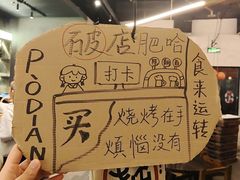 石皮店肥哈
PODIAN
打卡
食来运转
买
烧烤在手
煩惱没有